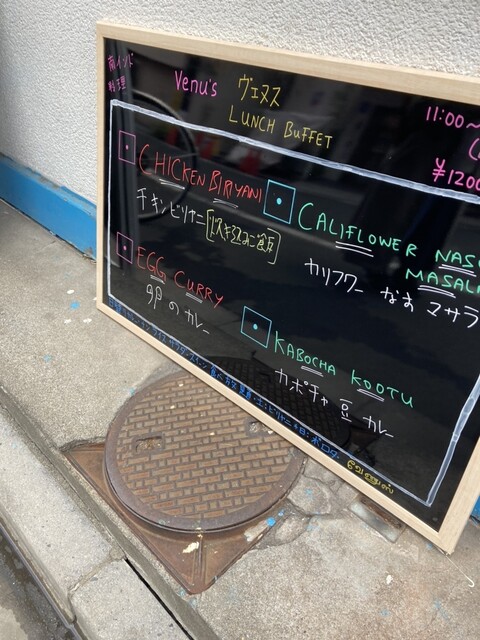 南インド
料理
Venu's ヴェヌス
LUNCH BUFFET
11:00~
¥1200
CHICKEN BIRIYANI
チキンビリヤニ[炊き込みご飯]
EGG CURRY
卵のカレー
CALIFLOWER NASU
MASALA
カリフワー なす マサラ
KABOCHA KOOTU
カボチャ 豆 カレー